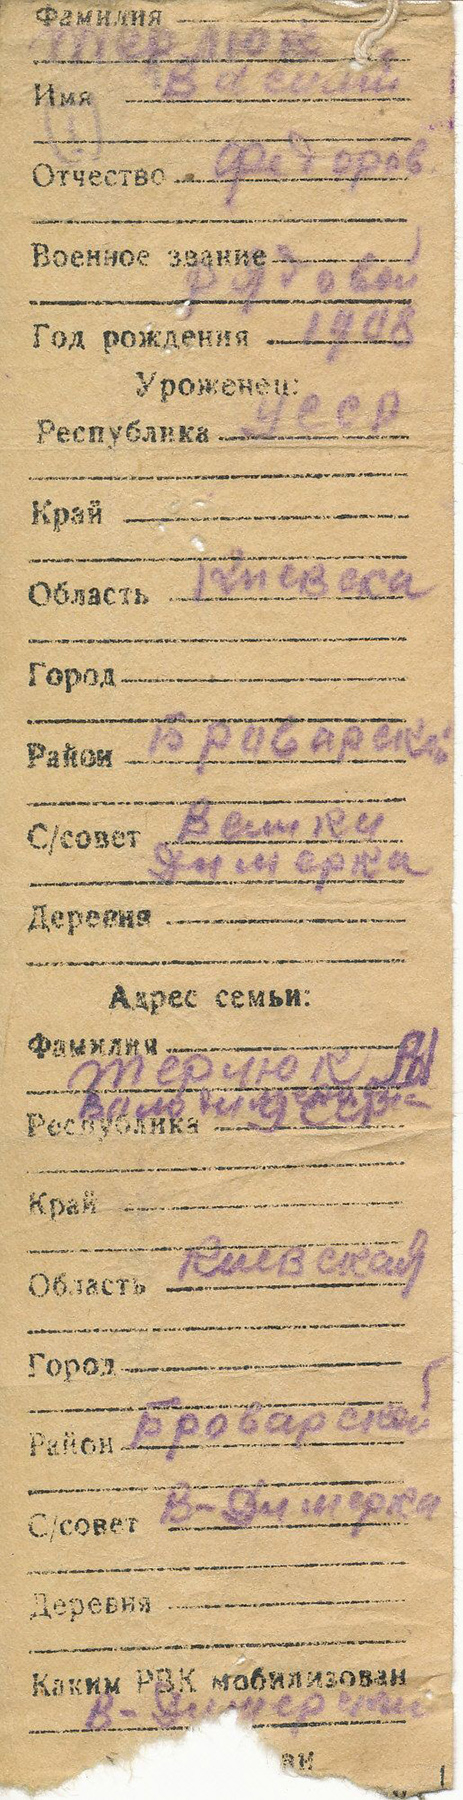 Фамилия
Терлюк
Имя Василий
(1)
Отчество Федоров
Военное звание
рядовой
Год рождения 1908
Уроженец:
Республика УССР
Край
Область Киевска
Город
Район Броварский
С/совет Велики
Димерка
Деревня
Адрес семьи:
Фамилия
Терлюк
УССР
Республика
Край
Область Киевская
Город
Район Броварской
С/совет В-Димерка
Деревня
Каким РВК мобилизован
В-Димерский